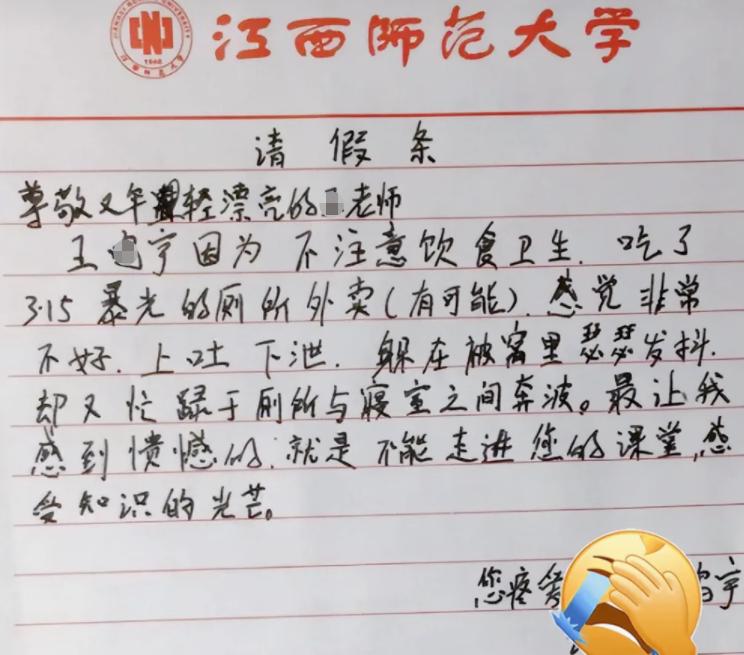 江西师范大学
请假条
尊敬又年轻漂亮的老师
王宇因为不注意饮食卫生.吃了
3.15暴光的厕所外卖(有可能).感觉非常
不好.上吐下泄.躲在被窝里瑟瑟发抖.
却又忙碌于厕所与寝室之间奔波。最让我
感到愤憾的.就是不能走进您的课堂,感
受知识的光芒。
您疼爱宇